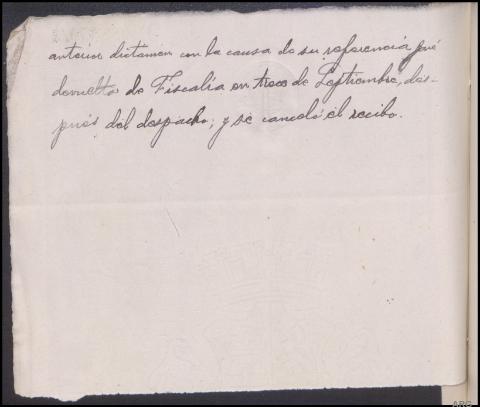 anterior dictamen con la causa de su referencia fué
devuelta de Fiscalía en trece de Septiembre, des-
pués del despacho; y se canceló el recibo.
ARG